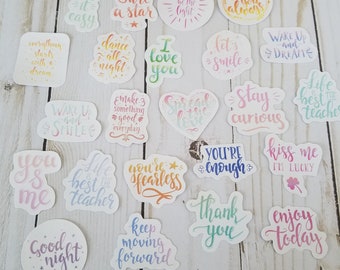 it easy
like
a star
be my
light
always
everything
starts
with a
dream
dance
all
night
I
love
you
let's
smile
WAKE UP
and
DREAM
Life
best
teacher
WAKE UP
SMILE
make
something
good
everyday
Spread
love
stay
curious
you
&
me
Life
best
teacher
you're
fearless
YOU'RE
enough
kiss me
I'M LUCKY
Good
night
keep
moving
forward
thank
you
enjoy
today